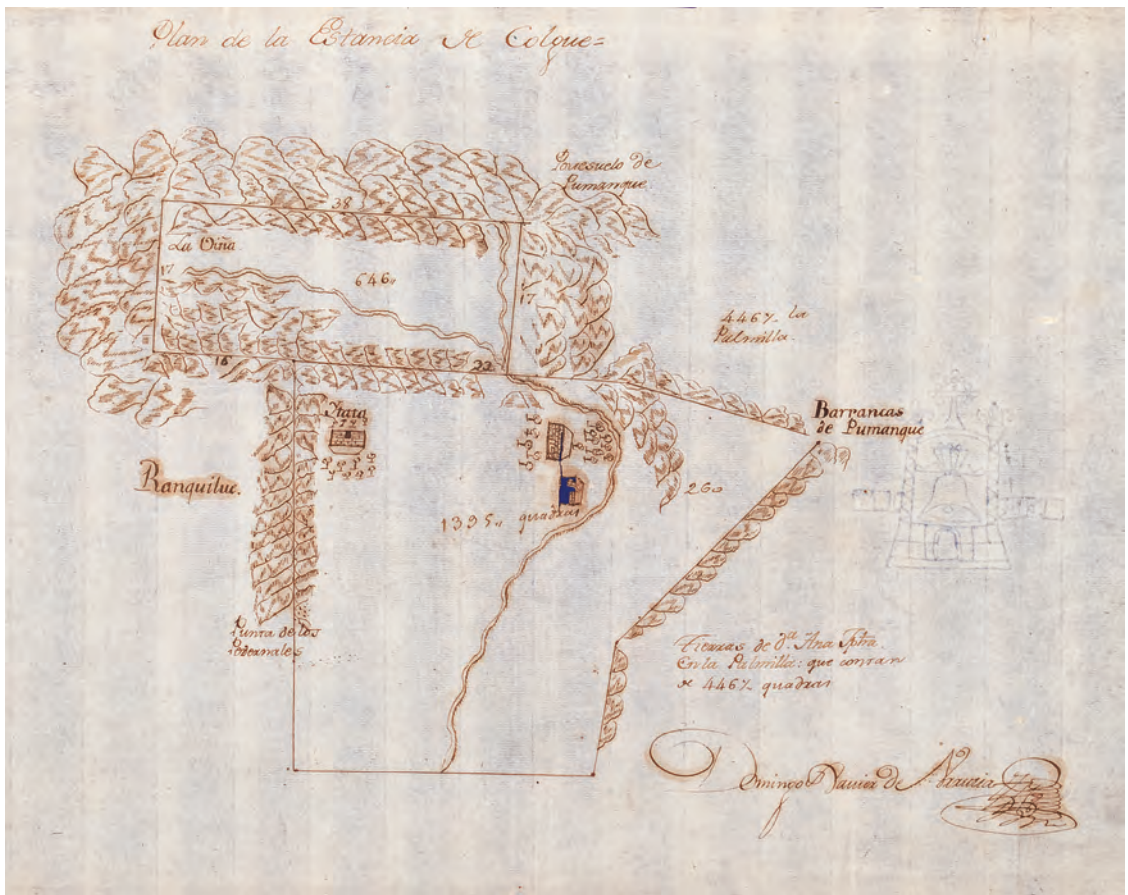 Plan de la Estancia de Colque=
Portesuelo de
Pumanque
38
La Viña
17
646,,
17
4467,, la
Palmilla
16
22
Barrancas
de Pumanque
Ranquilue.
260
1395,, quadras
Punta de los
Tierras de d.ª Ana
En la Palmilla: que contan
de 4467,, quadras
Domingo Xavier de